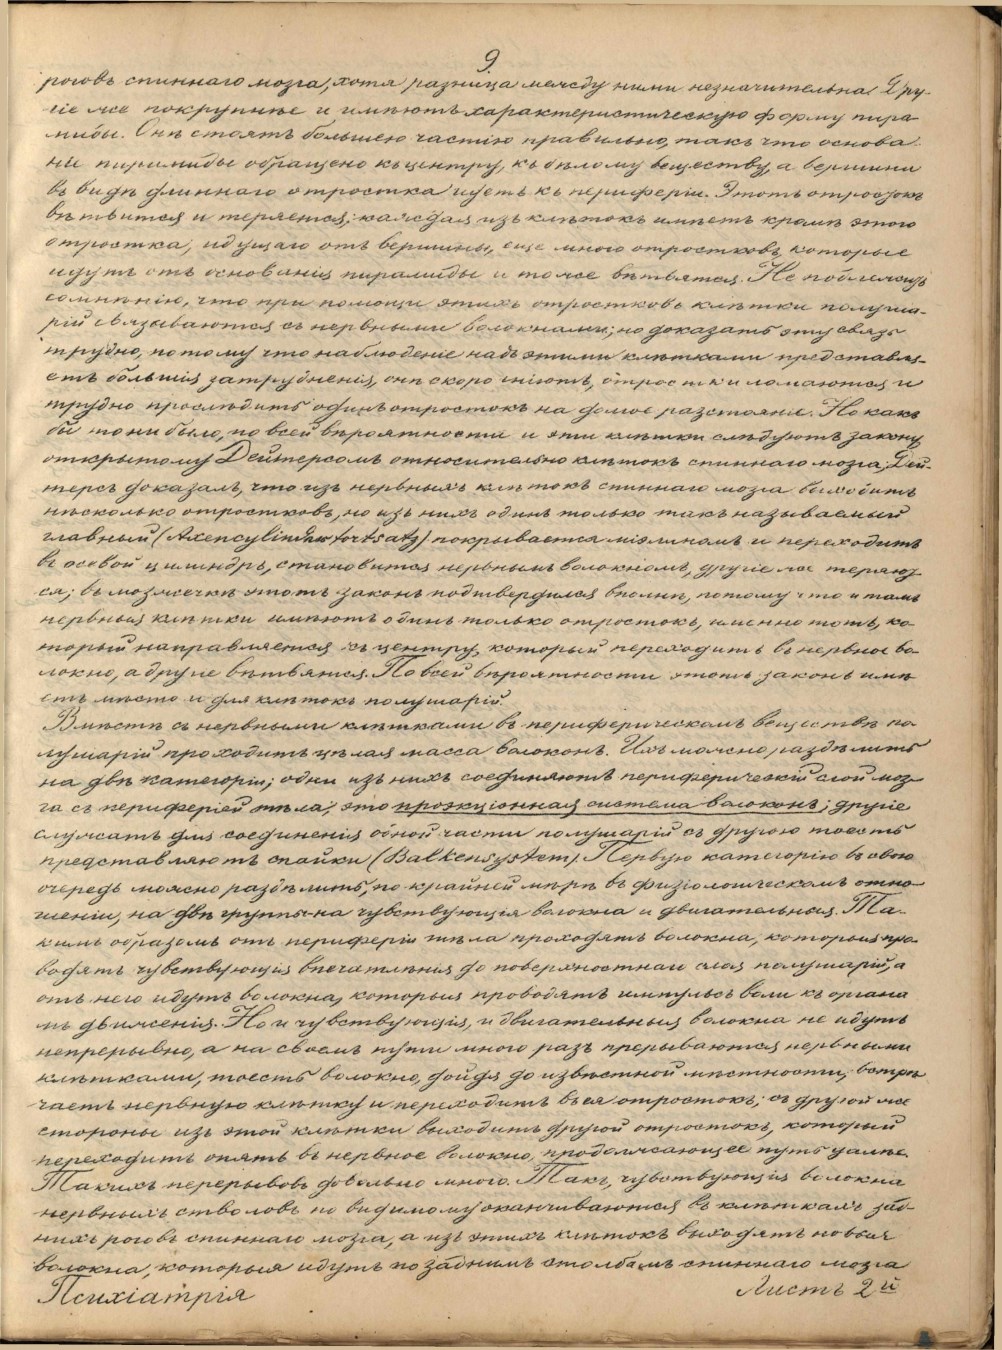 9
роговъ спиннаго мозга, хотя разница между ними незначительна. Дру-
гіе же покрупнѣе и имѣютъ характеристическую форму пира
миды. Онѣ стоятъ большею частію правильно, такъ что основа
ніе пирамиды обращено къ центру, къ бѣлому веществу, а вершина
въ видѣ длиннаго отростка идетъ къ периферіи. Этотъ отростокъ
вѣтвится и теряется; каждая изъ клѣтокъ имѣетъ кромѣ этого
отростка, идущаго отъ вершины, еще много отростковъ, которые
идутъ отъ основанія пирамиды и тоже вѣтвятся. Не подлежитъ
сомнѣнію, что при помощи этихъ отростковъ клѣтки полуша-
рій связываются съ нервными волокнами; но доказать эту связь
трудно, потому что наблюденіе надъ этими клѣтками представля-
етъ большія затрудненія, онѣ скоро гніютъ, отростки ломаются и
трудно прослѣдить одинъ отростокъ на долгое разстояніе. Но какъ
бы то ни было, по всей вѣроятности и эти клѣтки слѣдуютъ закону,
открытому Дейтерсомъ относительно клѣтокъ спиннаго мозга; Дей-
терсъ доказалъ, что изъ нервныхъ клѣтокъ спиннаго мозга выходитъ
нѣсколько отростковъ, но изъ нихъ одинъ только такъ называемый
главный (Axencylinderfortsatz) покрывается міэлиномъ и переходитъ
въ осевой цилиндръ, становится нервнымъ волокномъ, другіе же теряют
ся; въ мозжечкѣ этотъ законъ подтвердился вполнѣ, потому что и тамъ
нервныя клѣтки имѣютъ одинъ только отростокъ, именно тотъ, ко
торый направляется къ центру, который переходитъ въ нервное во-
локно, а другіе вѣтвятся. По всей вѣроятности этотъ законъ имѣ
етъ мѣсто и для клѣтокъ полушарій.
Вмѣстѣ съ нервными клѣтками въ периферическомъ веществѣ по-
лушарій проходитъ цѣлая масса волоконъ. Ихъ можно раздѣлить
на двѣ категоріи; одни изъ нихъ соединяютъ периферическій слой моз-
га съ периферіей тѣла, это проэкціонная система волоконъ; другіе
служатъ для соединенія одной части полушарій съ другою тоесть
представляютъ спайки (Balkensystem). Первую категорію въ свою
очередь можно раздѣлить, по крайней мѣрѣ въ физіологическомъ отно-
шеніи, на двѣ группы-на чувствующія волокна и двигательныя. Та-
кимъ образомъ отъ периферіи тѣла проходятъ волокна, которыя про-
водятъ чувствующія впечатлѣнія до поверхностнаго слоя полушарій, а
отъ него идутъ волокна, которыя проводятъ импульсъ воли къ органа
мъ движенія. Но и чувствующія, и двигательныя волокна не идутъ
непрерывно, а на своемъ пути много разъ прерываются нервными
клѣтками, тоесть волокно, дойдя до извѣстной мѣстности, встрѣ
чаетъ нервную клѣтку и переходитъ въ ея отростокъ; съ другой же
стороны изъ этой клѣтки выходитъ другой отростокъ, который
переходитъ опять въ нервное волокно, продолжающее путь далѣе.
Такихъ перерывовъ довольно много. Такъ, чувствующія волокна
нервныхъ стволовъ по видимому оканчиваются въ клѣткахъ зад-
нихъ роговъ спиннаго мозга, а изъ этихъ клѣтокъ выходятъ новыя
волокна, которыя идутъ по заднимъ столбамъ спиннаго мозга
Психіатрія Листъ 2й